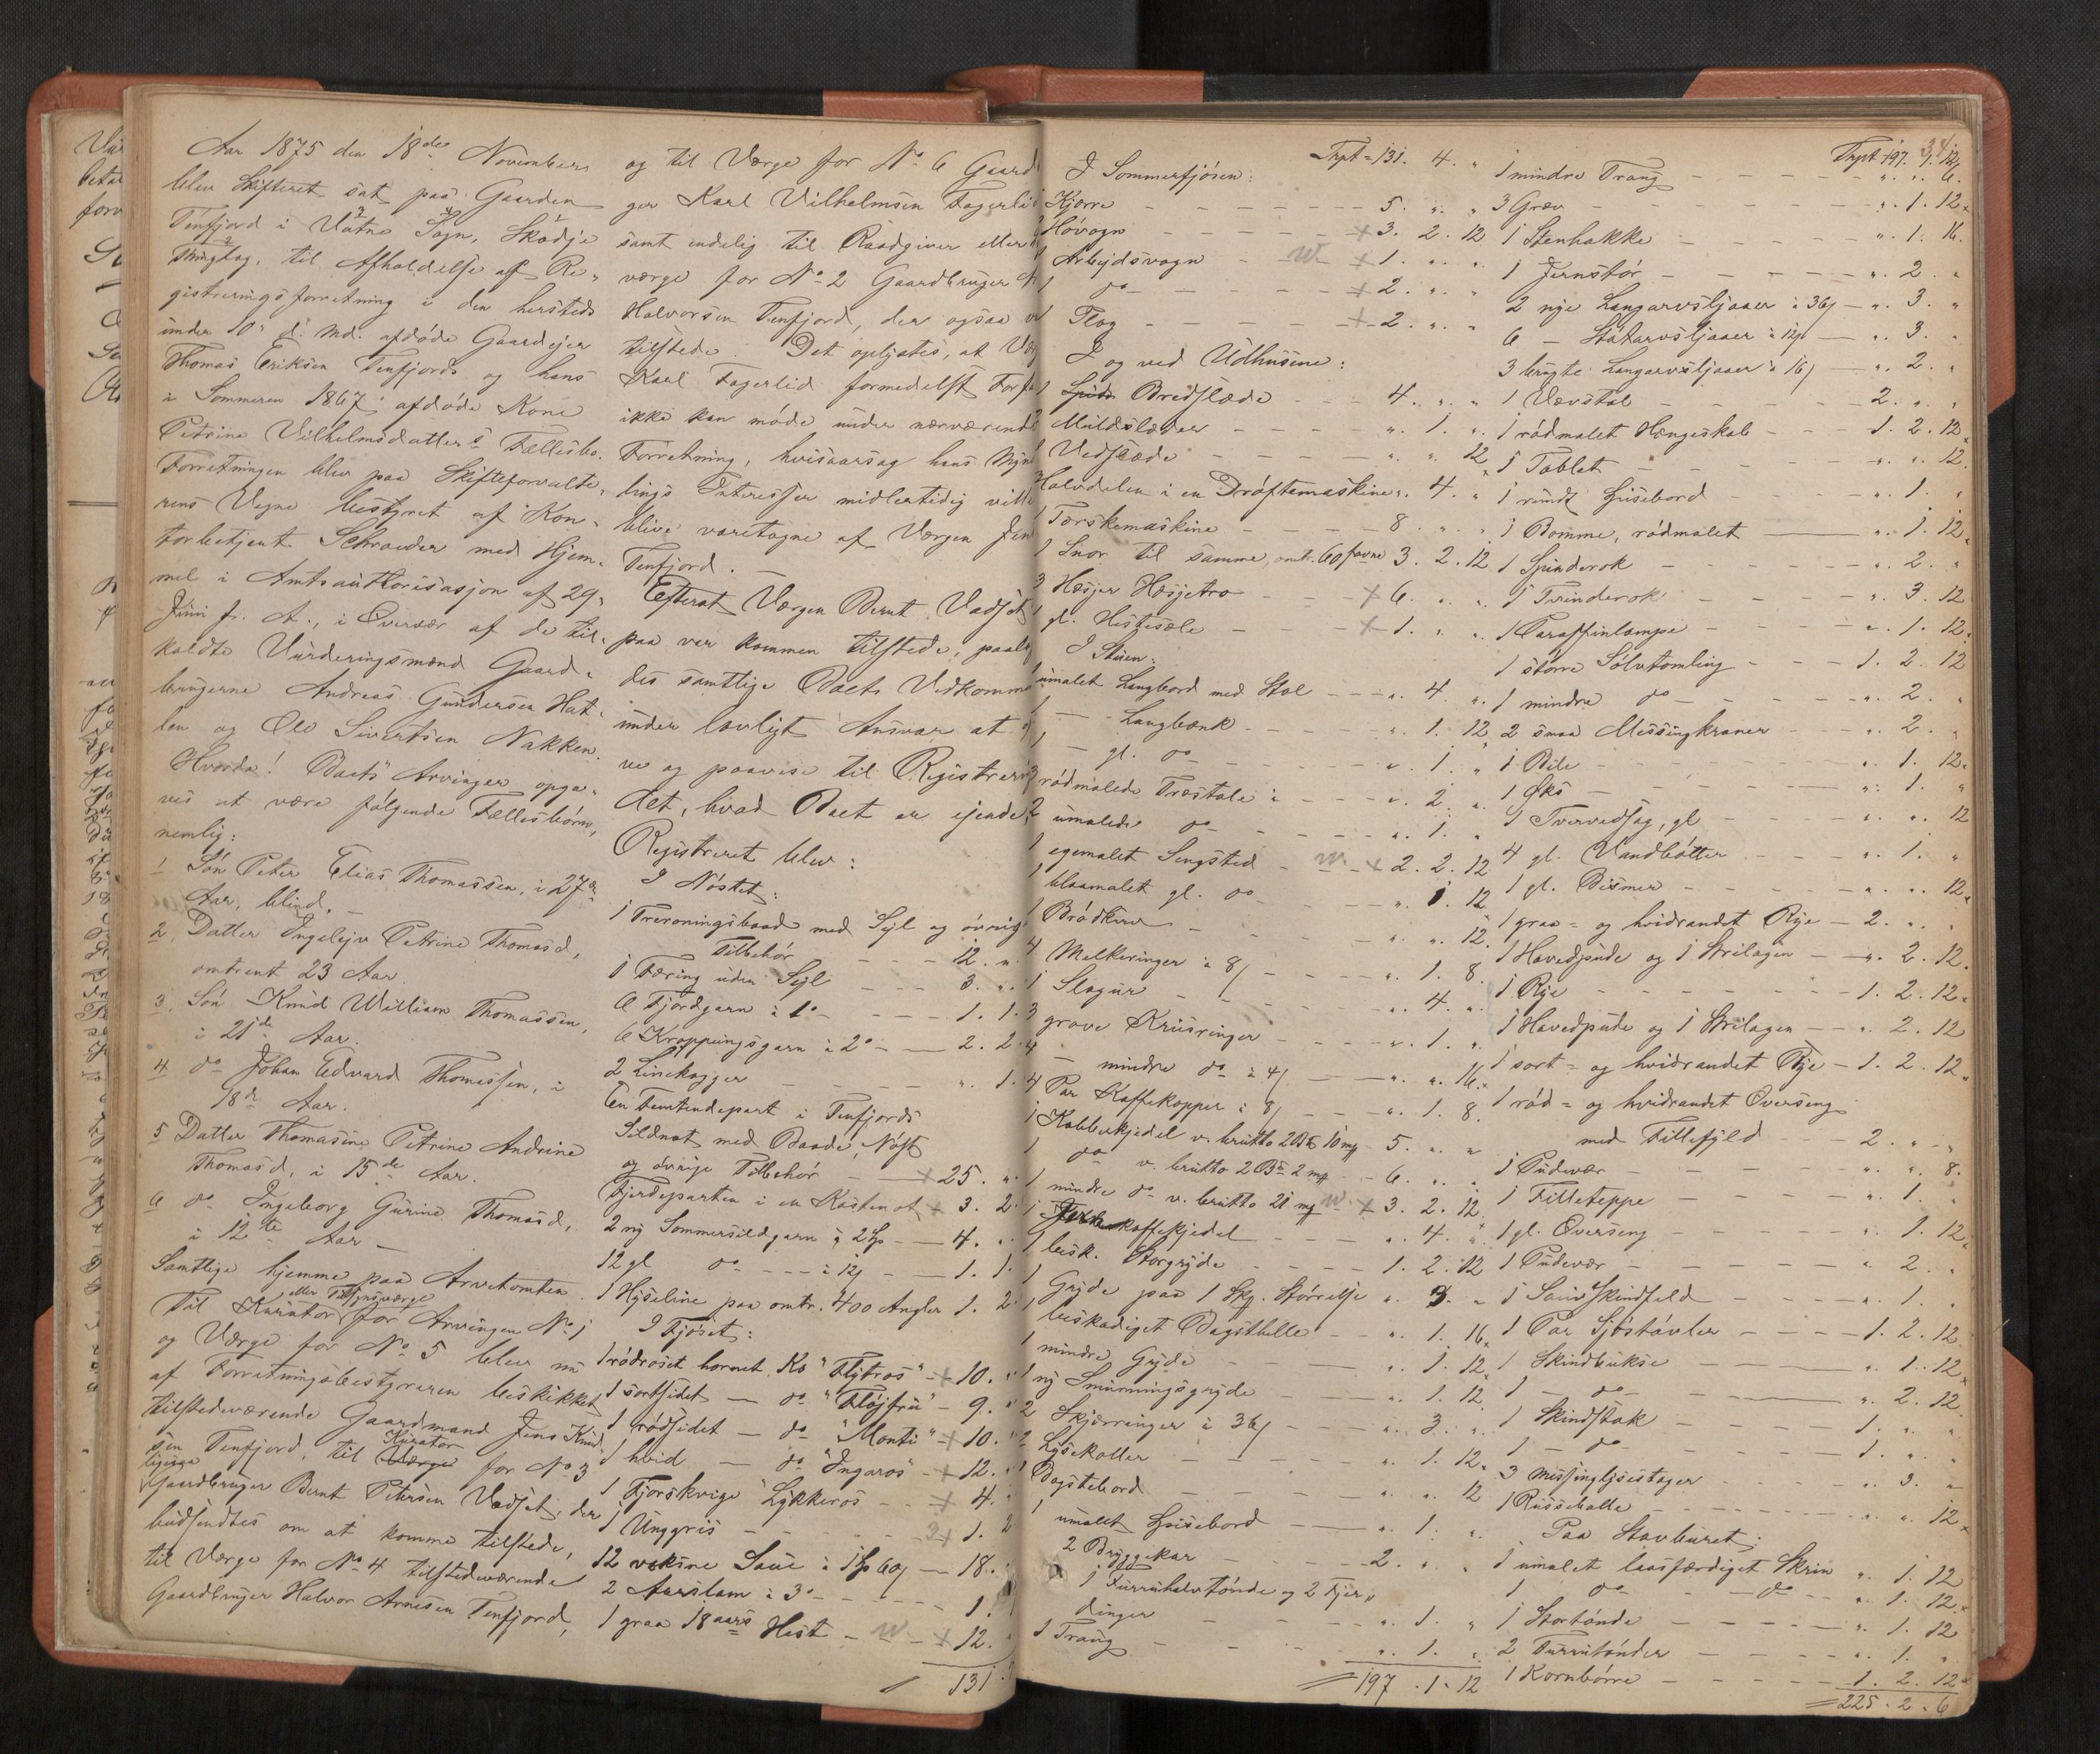 Aar 1875 den 18de November
blev Skifteret sat paa Gaarden
Tenfjord i Vatne Sogn, Skodje
Thinglag, til Afholdelse af Re-
gistreringsforretning i den hersteds
under 10de d. Md. afdøde Gaardejer
Thomas Eriksen Tenfjords og hans
i Sommeren 1867 afdøde Kone
Petrine Vilhelmsdatter's Fællesbo.
Forretningen blev paa Skifteforvalte-
rens Vegne bestyret af Kon-
torbetjent Schrøder med Hjem-
mel i Amtsauthorisasjon af 29
Juni f. A., i Overvær af de til-
kaldte Vurderingsmænd Gaard-
brugerne Andreas Gundersen Hat-
len og Ole Sivertsen Nakken.
Hvorda! Boets Arvinger opga-
ves at være følgende Fællesbørn,
nemlig:
1 Søn Peter Elias Thomassen, i 27de
Aar, blind.
2, Datter Ingeleiv Petrine Thomasd,
omtrent 23 Aar
3, Søn Knud William Thomassen,
i 21de Aar.
4 do Johan Edvard Thomassen, i
18de Aar.
5 Datter Thomasine Petrine Andrine
Thomasd, i 15de Aar.
6 do Ingeborg Gurine Thomasd,
i 12te Aar
Samtlige hjemme paa Arvetomten.
eller Tilsynsværge
Til Kurator for Arvingen No 1
og Værge for No 5 blev nu
af Forretningsbestyreren beskikket
tilstedeværende Gaardmand Jens Knud-
sen Tenfjord, til Kurator Værge for No 3
Gaardbruger Bernt Petersen Vadset, der
budsendtes om at komme tilstede,
til Værge for No 4 tilstedeværende
Gaardbruger Halvor Arnesen Tenfjord,
og til Værge for No 6 Gaard
ger Karl Vilhelmsen Fagerli
samt endelig til Raadgiver eller
værge for No 2 Gaardbruger
Halvorsen Tenfjord, der ogsaa
tilstede. Det oplystes, at Vær
Karl Fagerlid formedelst Forfa
ikke kan møde under nærværende
Forretning, hvisaarsag hans Myn
lings Interesser midlertidig ville
blive varetagne af Værgen Jens
Tenfjord.
Efterat Værgen Bernt Vadset
paa var kommen tilstede, paala
des samtlige Boets Vedkomme
under lovligt Ansvar at
ve og paavise til Registreri
det, hvad Boet er ejende,
Registreret blev:
I Nøstet:
1 Treroningsbaad med Sejl og øvrig
Tilbehør - - - 12. "
1 Færing uden Sejl - - - 3. "
6 Fjordgarn à 1o - - - 1. 1.
6 Kroppungsgarn à 2o - - 2. 2.
2 Linekagger - - - " 1.
En Femtendepart i Tenfjords
Sildnot med Baade, Nøst
og øvrige Tilbehør - + 25. "
Fjerdeparten i en Kastenot, + 3. 2
2 ny Sommersildgarn à 2 Sp - 4. "
12 gl do - - à 12 s - 1. 1.
1 Hyseline paa omtr. 400 Angler 1. 2
I Fjøset:
1 rødroset hornet Ko "Flytros" - + 10. "
1 sortsidet - do "Fløjfru" - 9. "
1 rødsidet - do "Monti" + 10. "
1 hvid - do "Ingaros" - + 12. "
1 Fjorskvige "Lykkeros - - + 4. "
1 Unggris - - - + 1. 2
12 voksne Saue à 1 Sp 60 s - 18. "
2 Aarslam à 3o - - - - 1.
1 graa 18 aars Hest - w - + 12. "
131.
Trpt = 131. 4. "
I Sommerfjøsen:
Kjærre - - - 5. " "
Høvogn - - - + 3. 2. 12
Arbejdsvogn - w - + 1. " "
1 do - - - + 2. " "
1 Plog - - - + 2. " "
I og ved Udhusene:
1 Bredslæde - - - 4. " "
Muldslæder - - - " 1. "
1 Vedslæde - - - " " 12
Halvdelen i en Drøftemaskine " 4. "
1 Tærskemaskine - - - 8. " "
1 Snor til samme, omtr. 60 favne 3. 2. 12
3 Hæsjer Hæsjetro - - + 6. " "
1 gl. Hestesæle - - + 1. " "
I Stuen:
1 umalet Langbord med Stol - - " 4. "
1 — Langbænk - - - " 1. 12
1 — gl. do - - - " 1. "
3 rødmalede Træstole à - - - " 2. "
2 umalede do - - - " 1. "
1 egemalet Sengsted - w - + 2. 2. 12
1 blaamalet gl. do - - - " 1. 12
1 Brødkurv - - - " " 12
4 Melkeringer à 8 s - - - " 1. 8
1 Slagur - - - " 4. "
3 grove Krusringer - - - " 1. "
4 — mindre do à 4 s - - " " 16
4 Par Kaffekopper à 8 s - - " 1. 8
1 Kobberkjedel v. brutto 2 B 10 mp - 5. " "
1 do v. brutto 2 B 2 mp - 6. " "
1 mindre do v. brutto 21 mp w + 3. 2. 12
1 kaffekjedel - - - " 4. "
1 besk. Storgryde - - - 1. 2. 12
1 Gryde paa 1 Skp. Størrelse " 3. "
1 beskadiget Bagsthelle - - " 1. 16
1 mindre Gryde - - - " 1. 12
1 ny Smurningsgryde - - - " 1. 12
2 Skjærringer à 36 s - - - " 3. "
2 Lysekoller - - - " 1. 12
1 Bagstebord - - - " " 12
1 umalet Spisebord - - " 1. "
2 Bryggekar - - - 2. " "
1 Furruhalvtønde og 2 Fjer-
dinger - - - " 1. "
1 Traug - - - " 1. "
197. 1. 12
34
Trpt 197. 1. 12
1 mindre Traug - - - " " 6.
3 Græv - - - " 1. 12
1 Stenhakke - - - " 1. 16.
1 Jernstør - - - " 2. "
2 nye Langarvsljaaer à 36 s - " 3. "
6 — Stutarvsljaaer à 12 s - " 3. "
3 brugte Langarvsljaaer à 16 s - " 2. "
1 Vævstol - - - 2. " "
1 rødmalet Hængeskab - - 1. 2. 12
1 Tablet - - - " " 12.
1 rundt Spisebord - - - " 1. "
1 Bomme, rødmalet - - " 1. 12
1 Spinderok - - - " 2. "
1 Tvinderok - - - " 3. 12
1 Paraffinlampe - - - " 1. 12
1 større Sølvtomling - - 1. 2. 12
1 mindre do - - - " 2. "
2 smaa Messingkraner - - " 2. "
1 Bile - - - " 1. 12
1 Øks - - - " 1. "
1 Tvervedsag, gl - - - " " 12
4 gl. Vandbøtter - - - " 1. "
1 gl. Bismer - - - " " 12
1 graa- og hvidrandet Rye - 2. " "
1 Hovedpude og 1 Strilagen - " 2. 12.
1 Rye - - - 1. 2. 12
1 Hovedpude og 1 Strilagen - " 2. 12
1 sort- og hvidrandet Rye - 1. 2. 12
1 rød- og hvidrandet Overseng
med Fillefyld - - 2. " "
1 Pudevær - - - " " 8.
1 Filleteppe - - - " 1. "
1 gl. Overseng - - - " 1. 12
1 Pudevær - - - " 2. "
1 Saueskindfeld - - - " 1. "
1 Par Sjøstøvler - - - 1. 2. 12
1 Skindbukse - - - " 1. 12
1 — do - - - " 2. 12
1 Skindstak - - - 1. " "
1 — do - - - 1. " "
3 Messinglysestager - - - " 3. "
1 Russebolle - - - " " 12
Paa Stavburet:
1 umalet laasfærdiget Skrin " 1. 12
1 do - do - " 1. 12
1 Stortønde - - - " 1. 12
2 Furrutønder - - - " 1. "
1 Kornbørre - - - 1. 2. 12
225. 2. 6